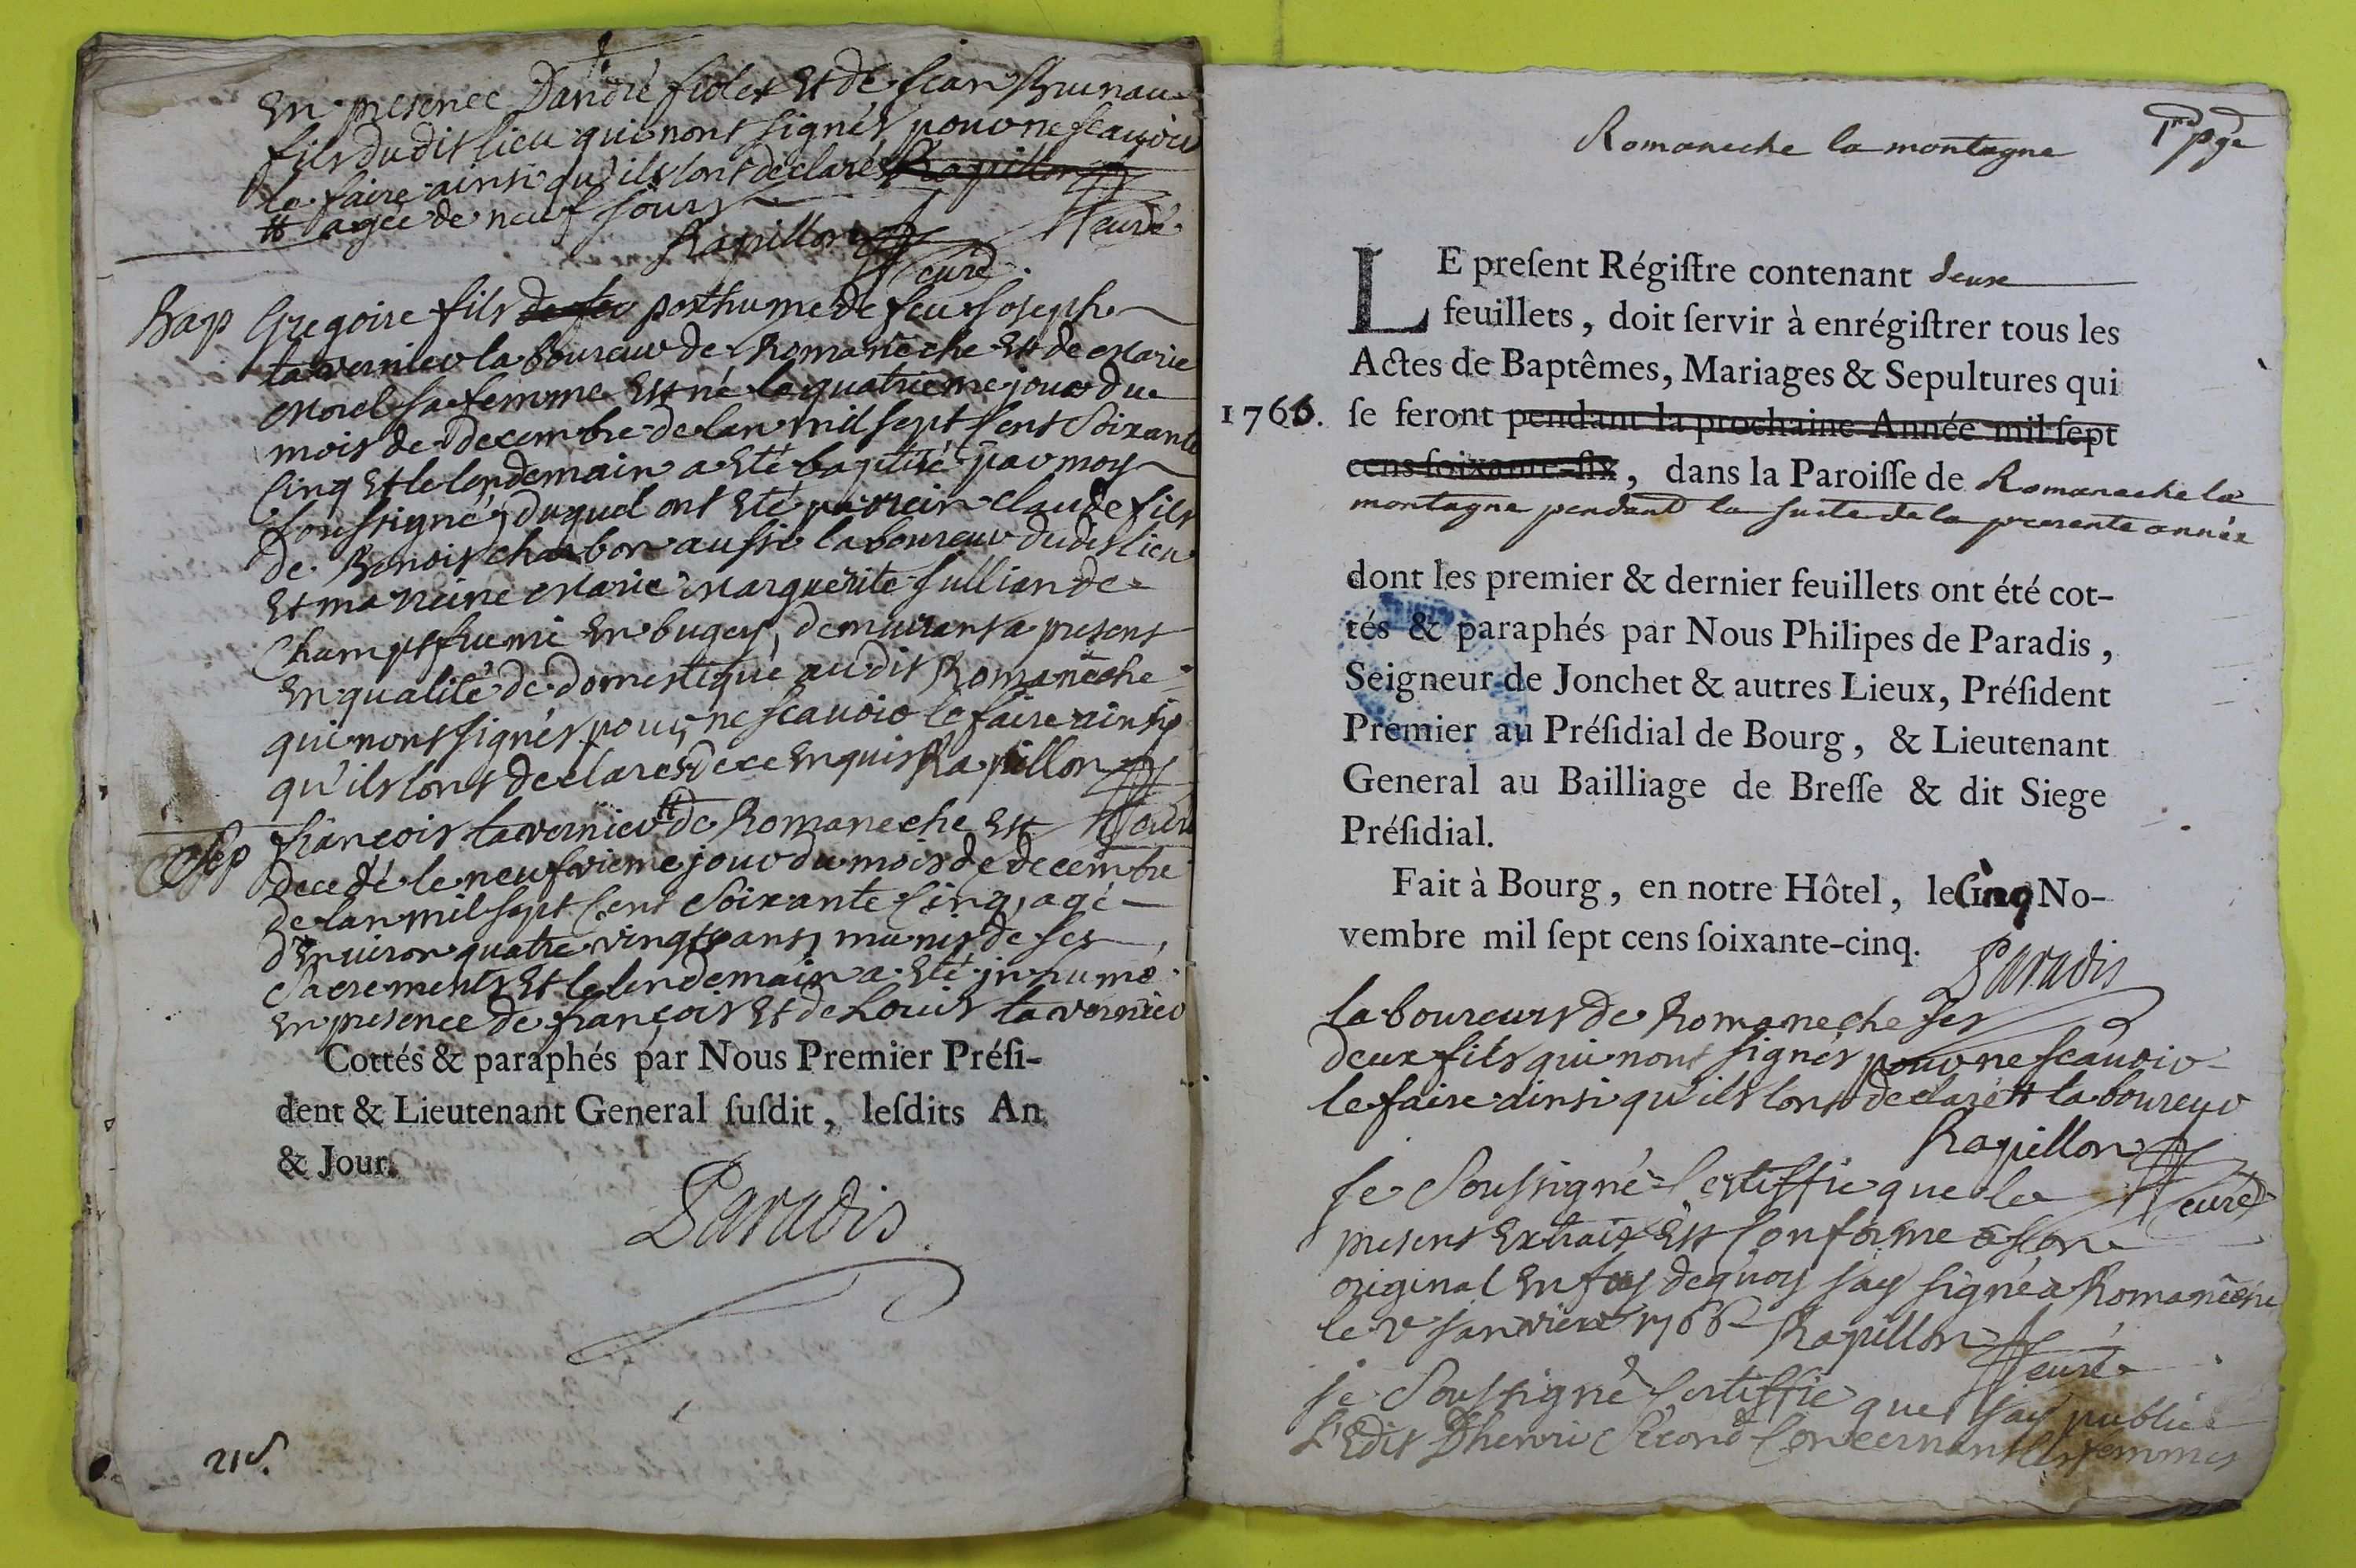 En presence Dandré fidel Et de Jean Brunau
fils du dit lieu qui nont signés pour ne scauoir
le faire ainsi qu'ils lont déclarés Rapillon
# agée de neuf jours curé
Rapillon
curé
Bap Gregoire fils de feu posthume de feu Joseph
tavernier laboureur de Romaneche Et de Marie
Morel sa femme Est né le quatrieme jour du
mois de Decembre de lan mil sept Cent Soixante
Cinq Et le lendemain a Eté baptisé par moy
soussigné, duquel ont Eté parrein claude fils
de Benoit charbon aussi laboureur dudit lieu
Et marreine Marie Marguerite Jullian de
Champfrumi En bugey, demeurant a present
En qualité de domestique au dit Romanêche
qui nont signés pour ne scauoir le faire ainsy
qu'ils lont declarés de ce Enquis Rapillon
Sep françois tavernier # de Romaneche Est curé
decedé le neufvieme jour du mois de decembre
de lan mil sept Cent Soixante Cinq, agé
d'Environ quatre vingts ans, munis de ses
Sacrements Et le lendemain a Eté inhumé
En presence de françois Et de Louis tavernier
Cottés & paraphés par Nous Premier Préſi-
dent & Lieutenant General ſuſdit, leſdits An
& Jour.
Paradis
Romaneche la montagne
1re pge
LE preſent Régiſtre contenant deux
feuillets, doit ſervir à enrégiſtrer tous les
Actes de Baptêmes, Mariages & Sepultures qui
1766. ſe feront pendant la prochaine Année mil ſept
cens ſoixante-ſix, dans la Paroiſſe de Romaneche la
montagne pendant la suite de la presente année
dont les premier & dernier feuillets ont été cot-
tés & paraphés par Nous Philipes de Paradis,
Seigneur de Jonchet & autres Lieux, Préſident
Premier au Préſidial de Bourg, & Lieutenant
General au Bailliage de Breſſe & dit Siege
Préſidial.
Fait à Bourg, en notre Hôtel, le Cinq No-
vembre mil ſept cens ſoixante-cinq.
Paradis
laboureurs de Romaneche ses
deux fils qui nont signés pour ne scauoir
le faire ainsi qu'ils lont declaré # laboureur
Rapillon
curé
Je Soussigné Certiffie que le
present Extrait Est Conforme a son
original En foy dequoy jay signé a Romanêche
le 2 Janvier 1766 Rapillon
curé
je Soussigné Certiffie que jay publié
L'Edit Dhenri Second Concernant les femmes